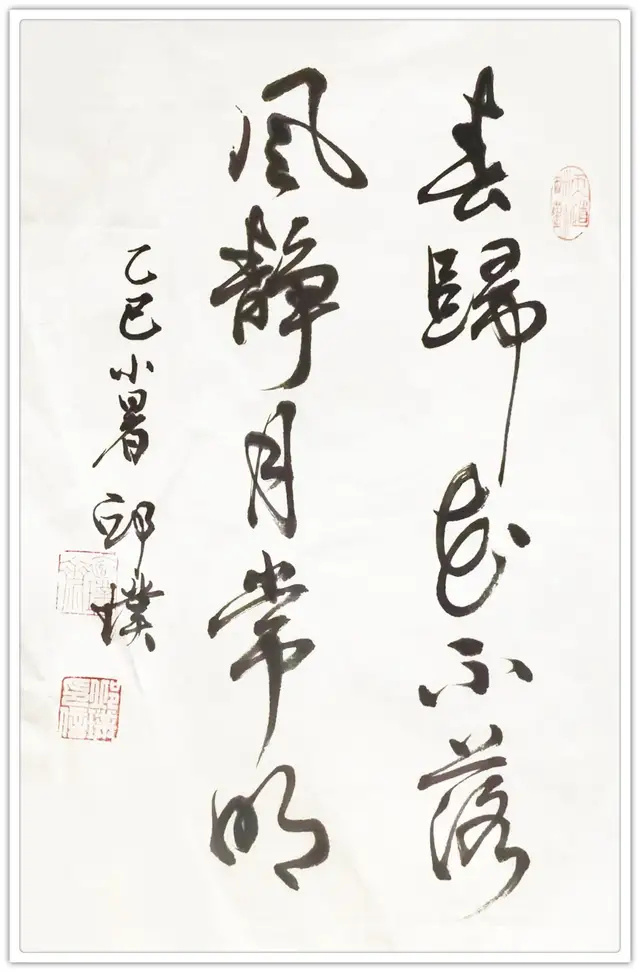 春歸花不落
風静月常明
乙巳小暑 邱墣